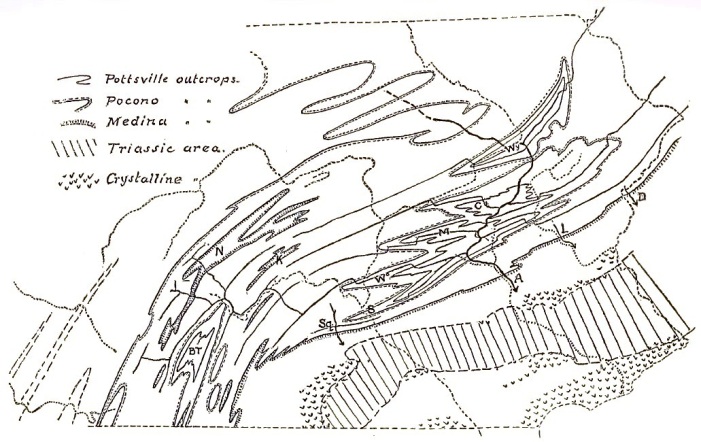 Pottsville outcrops.
Pocono " "
Medina " "
Triassic area.
Crystalline "
Wy
C
M
N
K
W
S
L
D
A
Sq
BT
J